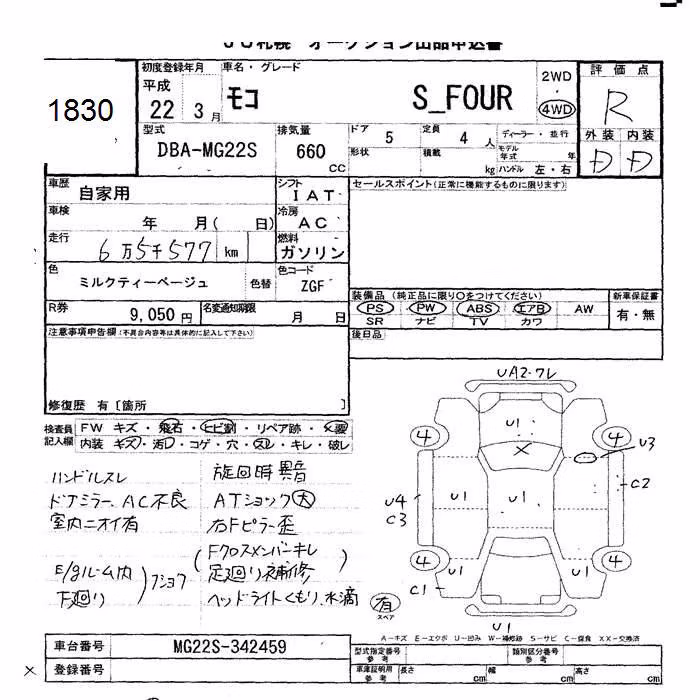 JU札幌 オークション出品申込書
1830
初度登録年月 車名・グレード 2WD 評価点
平成 22 3月 モコ S_FOUR 4WD R
型式 排気量 ドア 5 定員 4人 ディーラー・並行 外装 内装
DBA-MG22S 660 cc 形状 積載 kg モデル年式 年 ハンドル 左・右 D D
車歴 自家用 シフト IAT セールスポイント(正常に機能するものに限ります)
車検 年 月( 日) 冷房 AC
走行 6万5千577 km 燃料 ガソリン
色 ミルクティーベージュ 色替 色コード ZGF
装備品(純正品に限り〇をつけてください) 新車保証書
R券 9,050円 名変通知期限 月 日 PS PW ABS エアB AW 有・無
SR ナビ TV カワ
注意事項申告欄(不具合内容等は具体的に記入して下さい) 後日品
修復歴 有〔箇所 〕
検査員記入欄 FW キズ・飛石・ヒビ割・リペア跡・X要
内装 キズ・汚レ・コゲ・穴・スレ・キレ・破レ
ハンドルスレ 旋回時異音
ドアミラー、AC不良 ATショック大
室内ニオイ有 右Fピラー歪
(Fクロスメンバーキレ)
E/gルーム内 足廻り補修
下廻り フショク ヘッドライトくもり、水滴
UA2・ワレ
U1
X
4 4
U3
U4 C3
U1 U1
C2
4 4
U1 U1
C1
U1
有 スペア
A－キズ E－エクボ U－凹み W－補修跡 S－サビ C－腐食 XX－交換済
車台番号 MG22S-342459 型式指定番号 参考 類別区分番号 参考
× 登録番号 車庫証明用 参考 長さ cm 幅 cm 高さ cm